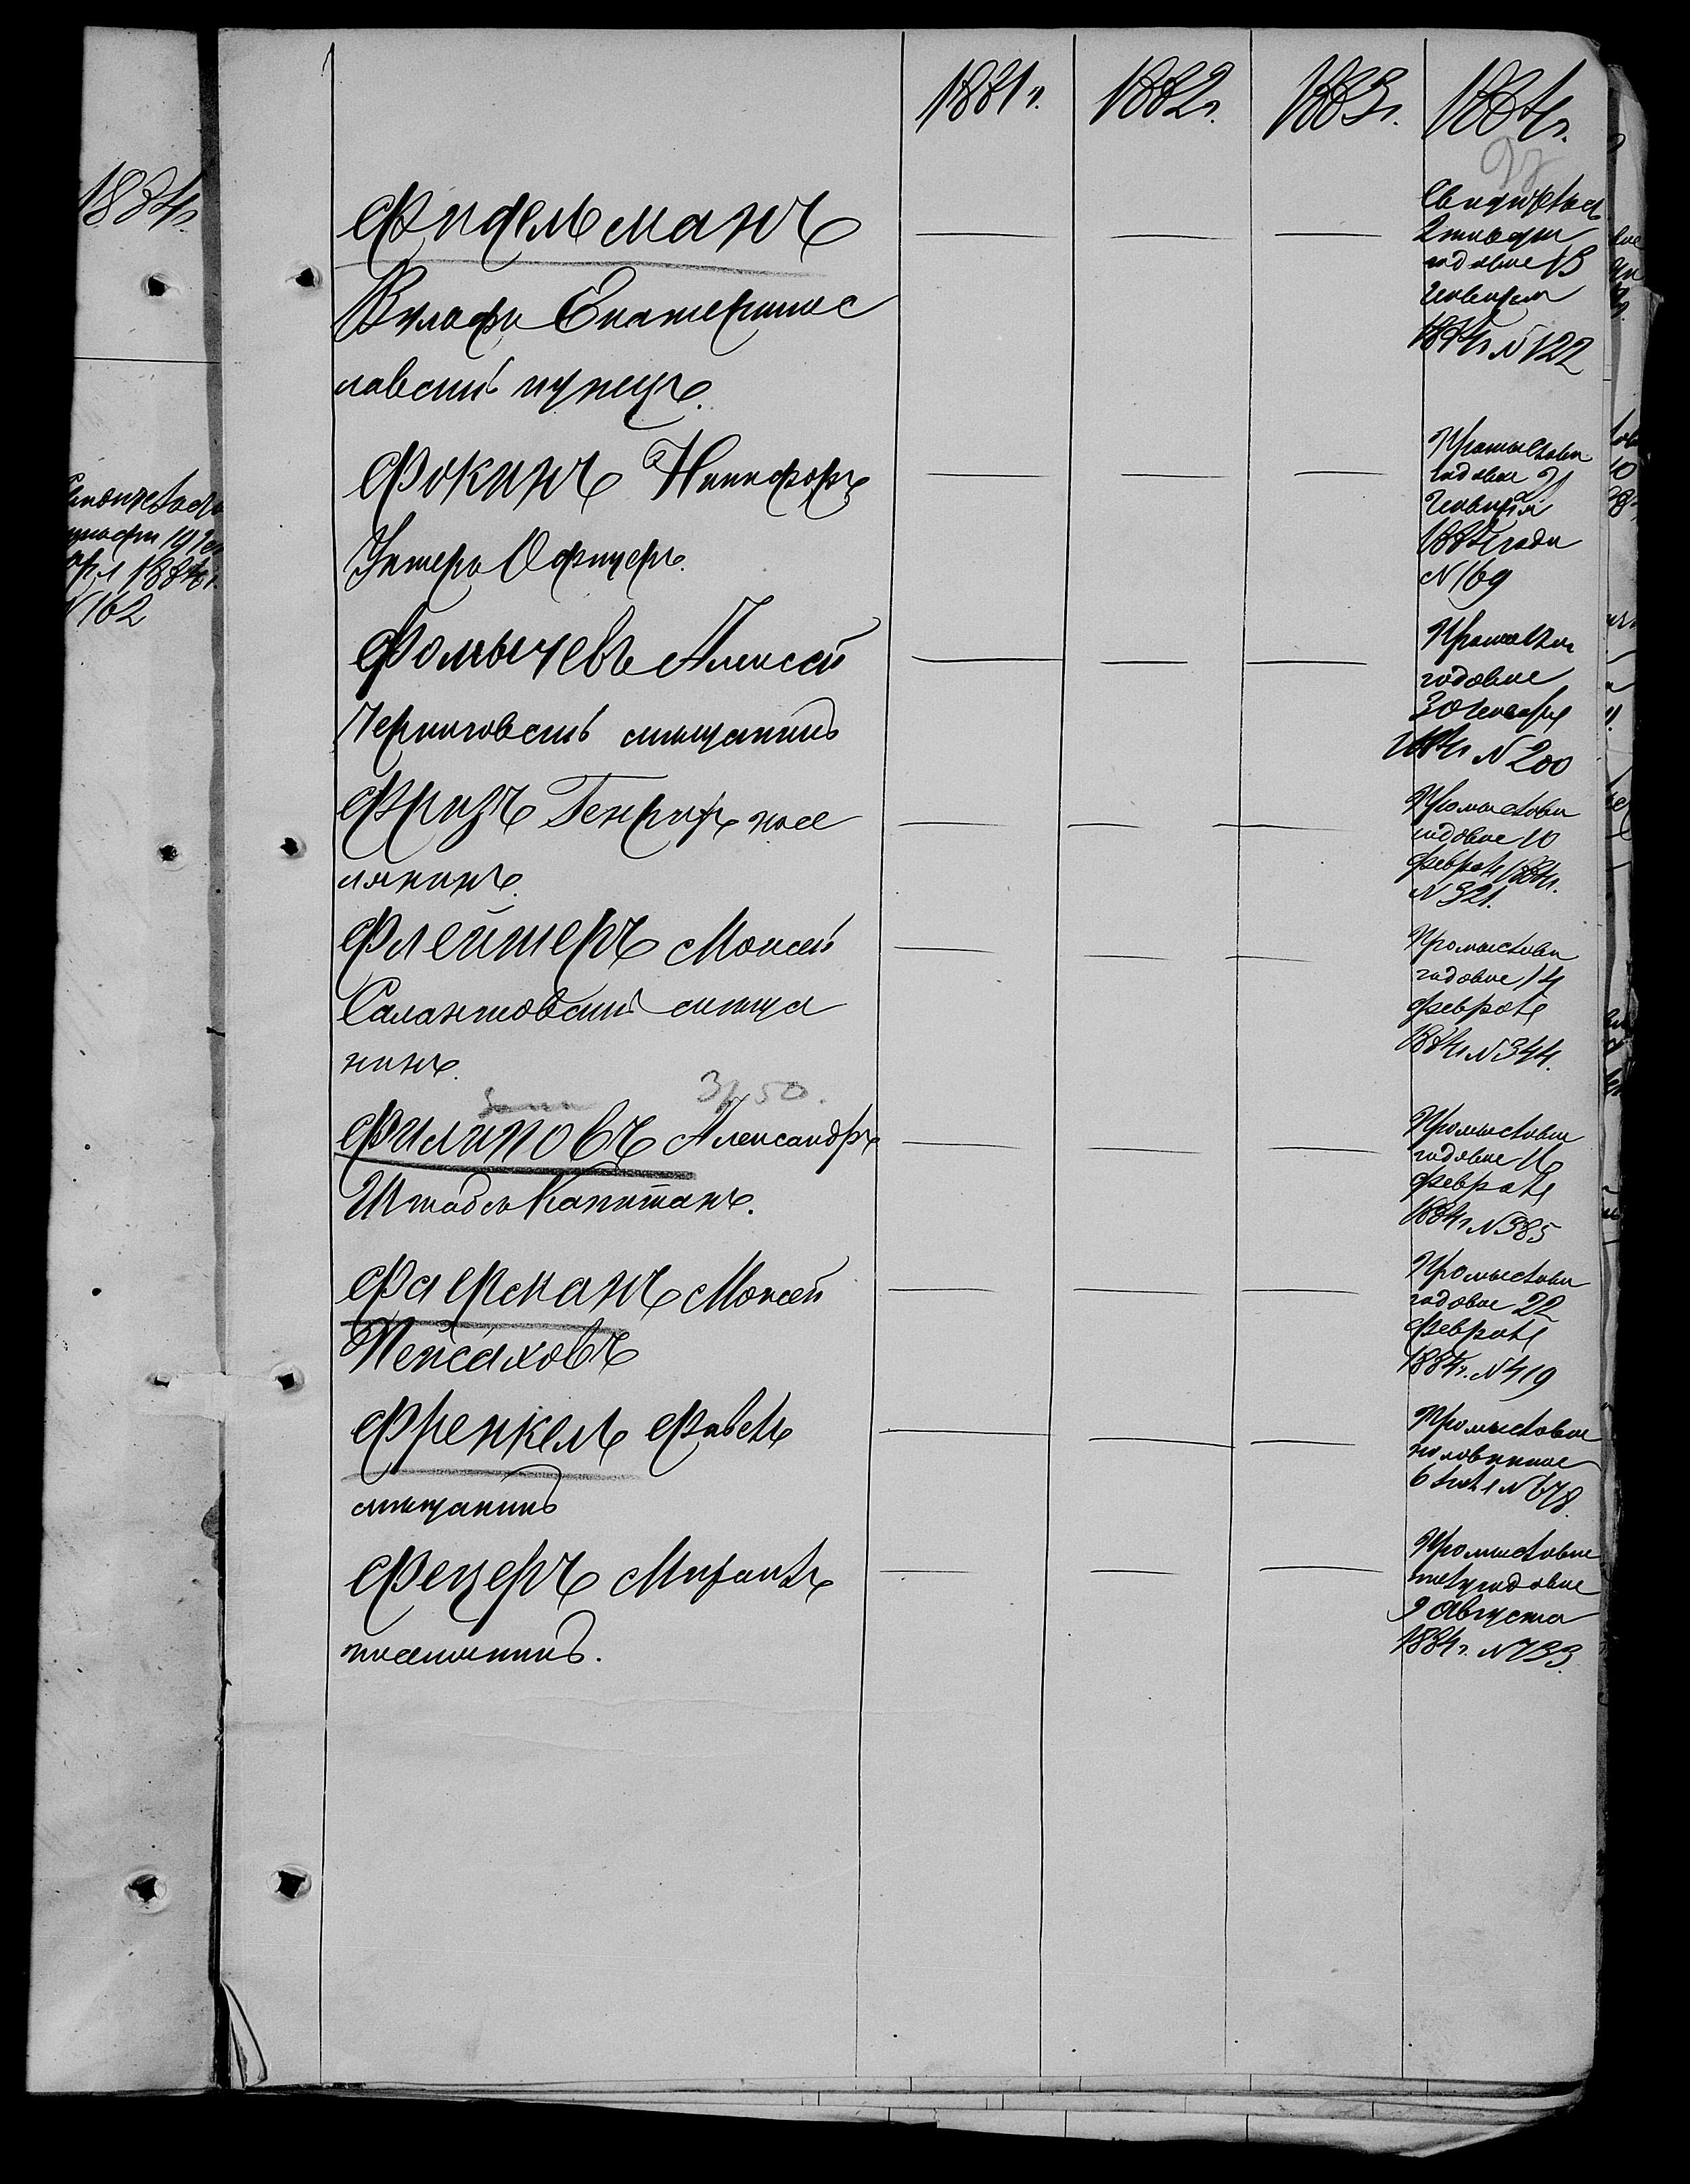 1881 г.
1882 г.
1883 г.
1884 г.
1884 г.
Фидельманъ
Вульфъ Екатеринос
лавскій купецъ.
Свидѣтель
2 гильдіи
годовое 13
Генваря
1884 г. N 122
Фокинъ Никифоръ
Унтеръ Офицеръ.
Промысловое
годовое 21
Генваря
1884 года
N 169
1884 г.
N 162
Фомычевъ Алексей
Черниговскій мѣщанинъ
Промысловое
годовое
30 Генваря
1884 г. N 200
Фризъ Генрихъ посе
лянинъ.
Промысловое
годовое 10
Февраля 1884 г.
N 321.
Флейшеръ Моисей
Салантовскій мѣща
нинъ.
Промысловое
годовое 14
Февраля
1884 г. N 344.
3 р 50.
Филиповъ Александръ
Штабсъ Капитанъ.
Промысловое
годовое 16
Февраля
1884 г. N 385
Фаерманъ Моисей
Пейсаховъ
Промысловое
годовое 22
Февраля
1884 г. N 419
Френкель Фавель
мѣщанинъ
Промысловое
половинное
6 Iюля N 678.
Фецеръ Михаилъ
поселянинъ.
Промысловое
полугодовое
9 Августа
1884 г. N 733.